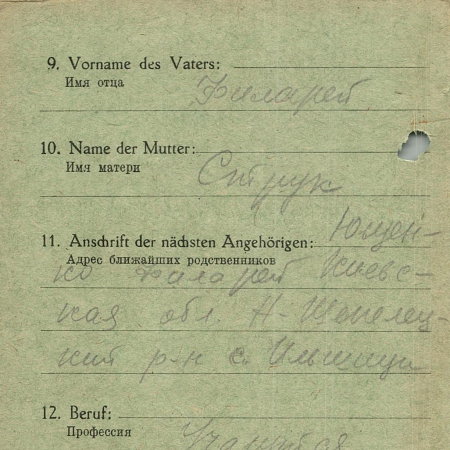 9. Vorname des Vaters:
Имя отца
Филарей -
10. Name der Mutter:
Имя матери
Струк
11. Anschrift der nächsten Angehörigen: Ющен-
Адрес ближайших родственников
ко Филарей Киевс-
кая обл. Н-Шепелец-
кий р-н с. Ильинци
12. Beruf:
Профессия
Учащийся